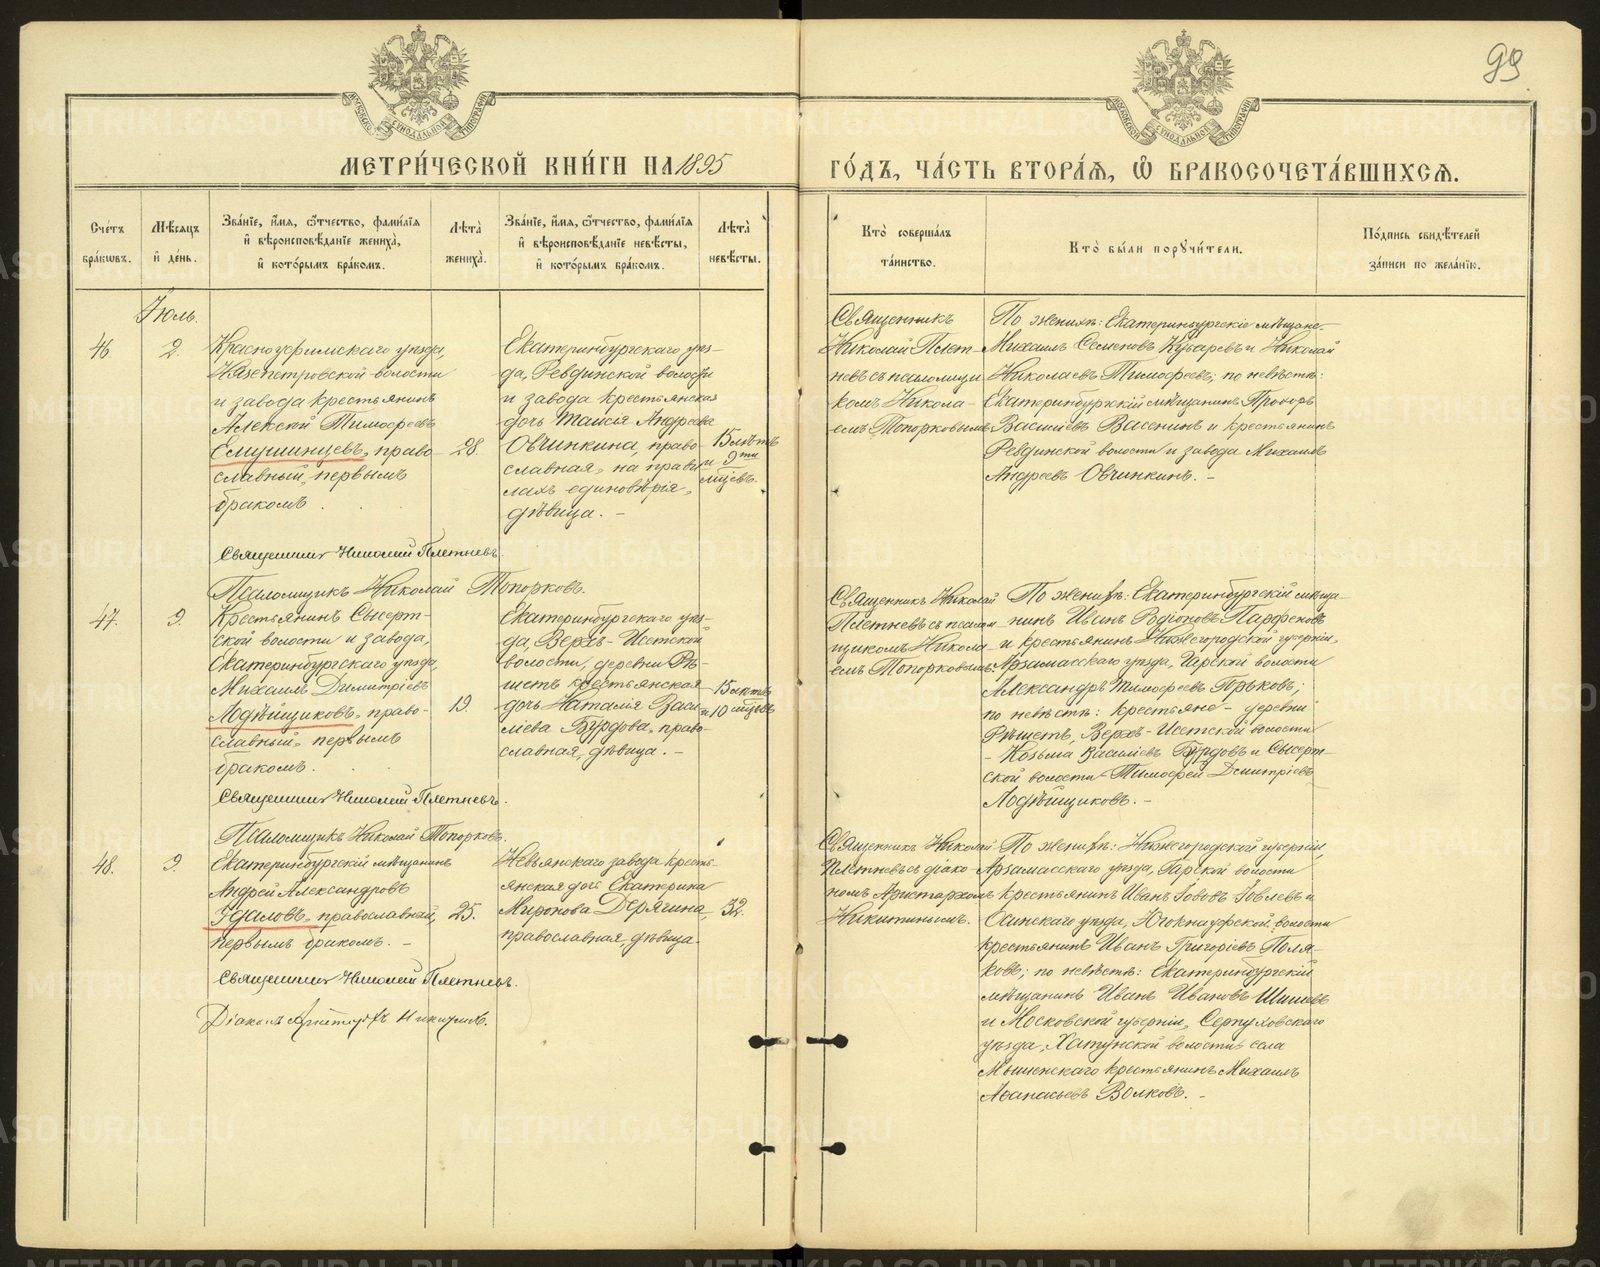 99
МЕТРИ́ЧЕСКОЙ КНИ́ГИ НА 1895
ГО́ДЪ, ЧА́СТЬ ВТОРА́Ѧ, Ѽ БРАКОСОЧЕТА́ВШИХСѦ.
Сче́тъ бра́кѡвъ.
Мѣ́сѧцъ и҆ де́нь.
Зва́нїе, и҆́мѧ, ѻ҆́тчество, фами́лїѧ
и҆ вѣроисповѣ́данїе жениха̀,
и҆ кото́рымъ бра́комъ.
Лѣта̀ жениха̀.
Зва́нїе, и҆́мѧ, ѻ҆́тчество, фами́лїѧ
и҆ вѣроисповѣ́данїе невѣ́сты,
и҆ кото́рымъ бра́комъ.
Лѣта̀ невѣ́сты.
Кто̀ соверша́лъ
та́инство.
Кто̀ бы́ли порꙋчи́тели.
По́дпись свидѣ́телей
за́писи по жела́нїю.
Іюль.
46.
2.
Красноуфимскаго уѣзда,
Нязепетровской волости
и завода крестьянинъ
Алексѣй Тимофеевъ
Емушинцевъ, право-
славный, первымъ
бракомъ.
28.
Екатеринбургскаго уѣз-
да, Ревдинской волости
и завода крестьянская
дочь Таисія Андреева
Овчинкина, право-
славная, на прави-
лахъ единовѣрія,
дѣвица. –
15 лѣтъ
и 9ти
мѣсцевъ.
Священникъ
Николай Плет-
невъ съ псаломщи
комъ Никола-
емъ Топорковымъ
По женихѣ: Екатеринбургскіе мѣщане-
Михаилъ Семеновъ Кубаревъ и Николай
Николаевъ Тимофеевъ; по невѣстѣ:
Екатеринбургскій мѣщанинъ Прохоръ
Василіевъ Васенинъ и крестьянинъ
Ревдинской волости и завода Михаилъ
Андреевъ Овчинкинъ. –
Священникъ Николай Плетневъ.
Псаломщикъ Николай Топорковъ.
47.
9.
Крестьянинъ Сысерт-
ской волости и завода,
Екатеринбургскаго уѣзда,
Михаилъ Димитріевъ
Лодѣйщиковъ, право-
славный, первымъ
бракомъ.
19
Екатеринбургскаго уѣз-
да, Верхъ-Исетской
волости, деревни Рѣ-
шетъ крестьянская
дочь Наталія Васи-
ліева Бурдова, право-
славная, дѣвица. –
15 лѣтъ
и 10 мѣсцевъ
Священникъ Николай
Плетневъ съ псалом-
щикомъ Никола-
емъ Топорковымъ
По женихѣ: Екатеринбургскій мѣща-
нинъ Иванъ Родіоновъ Парфеновъ
и крестьянинъ Нижегородской губерніи,
Арзамасскаго уѣзда, Чарской волости
Александръ Тимофеевъ Горьковъ;
по невѣстѣ: крестьяне – деревни
Рѣшетъ, Верхъ-Исетской волости
– Козьма Василіевъ Бурдовъ и Сысерт-
ской волости – Тимофей Дмитріевъ
Лодѣйщиковъ. –
Священникъ Николай Плетневъ.
Псаломщикъ Николай Топорковъ.
48.
9.
Екатеринбургскій мѣщанинъ
Андрей Александровъ
Удаловъ, православный,
первымъ бракомъ. –
25.
Невьянскаго завода кресть-
янская дочь Екатерина
Миронова Дерягина,
православная, дѣвица.
32.
Священникъ Николай
Плетневъ съ діако-
номъ Аристархомъ
Никитинымъ.
По женихѣ: Нижегородской губерніи,
Арзамасскаго уѣзда, Гарской волости
крестьянинъ Иванъ Іововъ Іовлевъ и
Осинскаго уѣзда, Югокнауфской волости
крестьянинъ Иванъ Григоріевъ Поля-
ковъ; по невѣстѣ: Екатеринбургскій
мѣщанинъ Иванъ Ивановъ Шишевъ
и Московской губерніи, Серпуховскаго
уѣзда, Хатунской волости села
Мышенскаго крестьянинъ Михаилъ
Аѳанасьевъ Волковъ. –
Священникъ Николай Плетневъ.
Діаконъ Аристархъ Никитинъ.